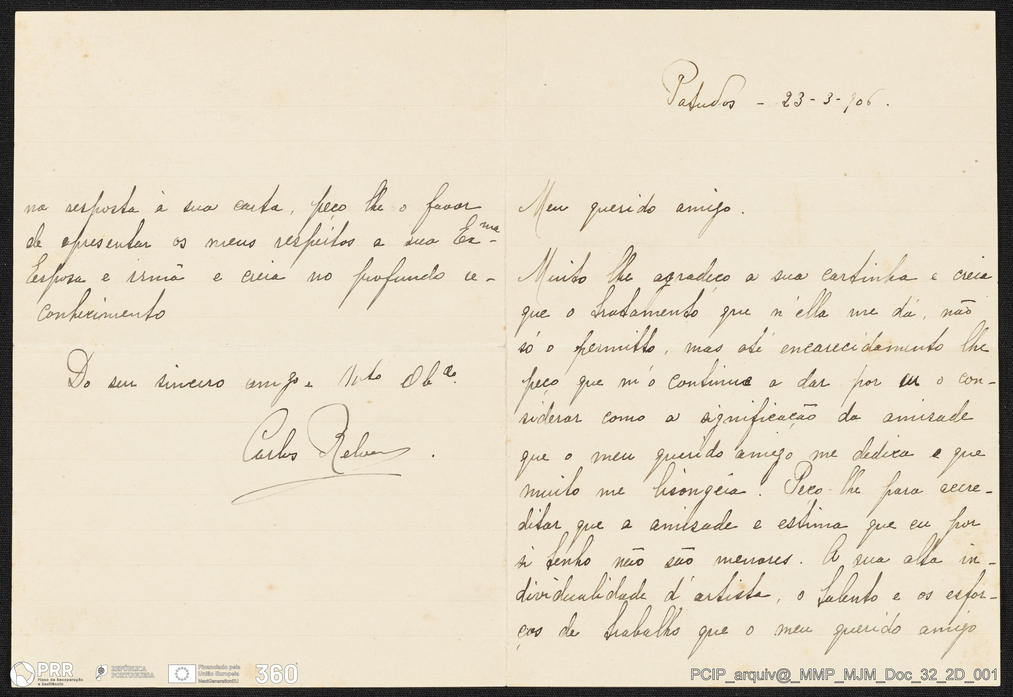 Patudos - 23-3-906.
Meu querido amigo.
Muito lhe agradeço a sua cartinha e creia
que o tratamento que n'ella me dá, não
só o permitto, mas até encarecidamento lhe
peço que m'o continue a dar por eu o con-
siderar como a significação da amisade
que o meu querido amigo me dedica e que
muito me lisongeia. Peço-lhe para acre-
ditar que a amisade e estima que eu por
si tenho não são menores. A sua alta in-
dividualidade d'artista, o talento e os esfor-
ços de trabalho que o meu querido amigo
na resposta á sua carta, peço lhe o favor
de apresentar os meus respeitos a sua Ex.ma
Esposa e irmã e creia no profundo re-
conhecimento
Do seu sincero amigo e Mto Obdo.
Carlos Relvas.
PRR
Plano de Recuperação
e Resiliência
REPÚBLICA
PORTUGUESA
Financiado pela
União Europeia
NextGenerationEU
360
PCIP_arquiv@_MMP_MJM_Doc_32_2D_001